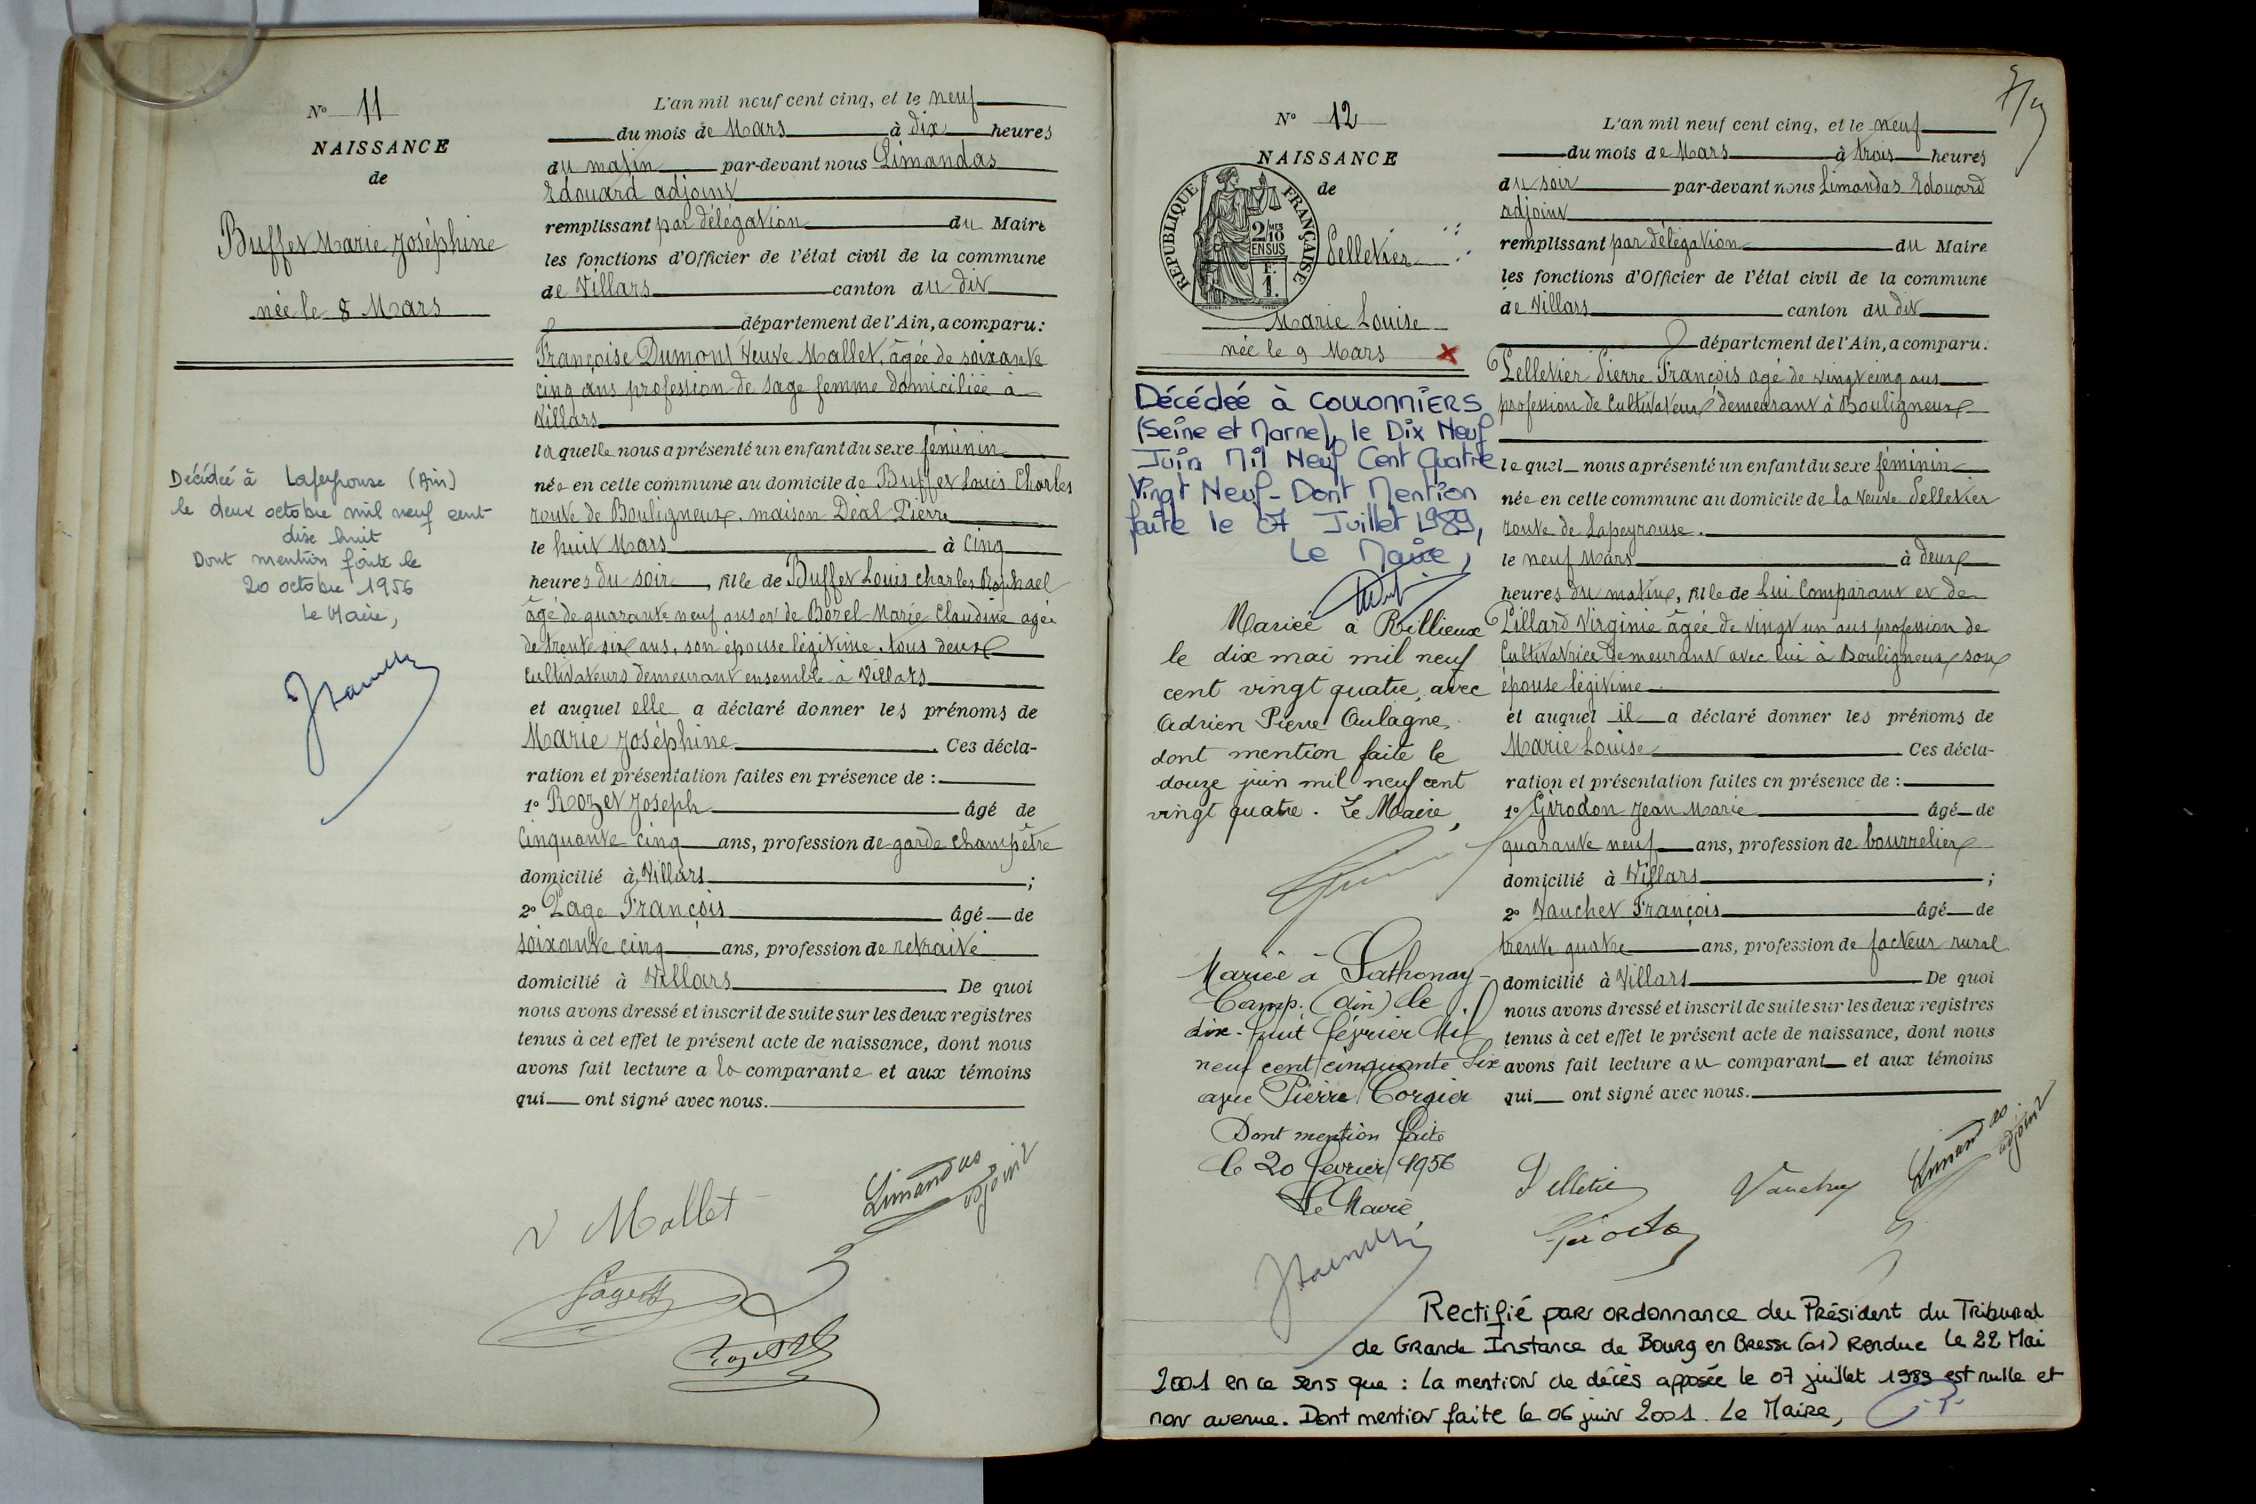 N° 11
NAISSANCE
de
Buffet Marie Joséphine
née le 8 Mars
Décédée à Lapeyrouse (Ain)
le deux octobre mil neuf cent
dix huit
Dont mention faite le
20 octobre 1956
Le Maire,
L'an mil neuf cent cinq, et le neuf
du mois de Mars à dix heures
du matin par-devant nous Limandas
Edouard adjoint
remplissant par délégation du Maire
les fonctions d'Officier de l'état civil de la commune
de Villars canton du dit
département de l'Ain, a comparu:
Françoise Dumont Veuve Mallet, âgée de soixante
cinq ans profession de sage femme domiciliée à
Villars
laquelle nous a présenté un enfant du sexe féminin
née en cette commune au domicile de Buffet Louis Charles
route de Bouligneux. maison Déal Pierre
le huit Mars à cinq
heures du soir, fille de Buffet Louis Charles Raphael
âgé de quarante neuf ans et de Borel Marie Claudine agée
de trente six ans, son épouse légitime. tous deux
cultivateurs demeurant ensemble à Villars
et auquel elle a déclaré donner les prénoms de
Marie Joséphine. Ces décla-
ration et présentation faites en présence de :
1° Rozet Joseph âgé de
Cinquante cinq ans, profession de garde champêtre
domicilié à Villars ;
2° Page François âgé de
soixante cinq ans, profession de retraité
domicilié à Villars. De quoi
nous avons dressé et inscrit de suite sur les deux registres
tenus à cet effet le présent acte de naissance, dont nous
avons fait lecture a la comparante et aux témoins
qui ont signé avec nous.
V Mallet
Limandas
adjoint
N° 12
NAISSANCE
de
REPUBLIQUE FRANÇAISE
2/10MES
EN SUS
F.
1.
Pelletier
Marie Louise
née le 9 Mars
Décédée à COULOMMIERS
(Seine et Marne), le Dix Neuf
Juin Mil Neuf Cent Quatre
Vingt Neuf - Dont Mention
faite le 07 Juillet 1989,
Le Maire,
Mariée à Rillieux
le dix mai mil neuf
cent vingt quatre, avec
Adrien Pierre Aulagne,
dont mention faite le
douze juin mil neuf cent
vingt quatre. Le Maire,
Mariée à Sathonay-
Camp. (Ain) le
dix-huit février Mil
neuf cent cinquante six
avec Pierre Corgier
Dont mention faite
le 20 février 1956
Le Maire,
L'an mil neuf cent cinq, et le neuf
du mois de Mars à trois heures
du soir par-devant nous Limandas Edouard
adjoint
remplissant par délégation du Maire
les fonctions d'Officier de l'état civil de la commune
de Villars canton du dit
département de l'Ain, a comparu:
Pelletier Pierre François agé de vingt cinq ans
profession de Cultivateur demeurant à Bouligneux
lequel nous a présenté un enfant du sexe féminin
née en cette commune au domicile de la Veuve Pelletier
route de Lapeyrouse.
le neuf Mars à deux
heures du matin, fille de Lui Comparant et de
Pillard Virginie âgée de vingt un ans profession de
Cultivatrice demeurant avec lui à Bouligneux son
épouse légitime
et auquel il a déclaré donner les prénoms de
Marie Louise Ces décla-
ration et présentation faites en présence de :
1° Girodon Jean Marie âgé de
quarante neuf ans, profession de bourrelier
domicilié à Villars ;
2° Vaucher François âgé de
trente quatre ans, profession de facteur rural
domicilié à Villars De quoi
nous avons dressé et inscrit de suite sur les deux registres
tenus à cet effet le présent acte de naissance, dont nous
avons fait lecture au comparant et aux témoins
qui ont signé avec nous.
Limandas
adjoint
Rectifié par ordonnance du Président du Tribunal
de Grande Instance de Bourg en Bresse (01) Rendue le 22 Mai
2001 en ce sens que : la mention de décès apposée le 07 juillet 1989 est nulle et
non avenue. Dont mention faite le 06 juin 2001. Le Maire,